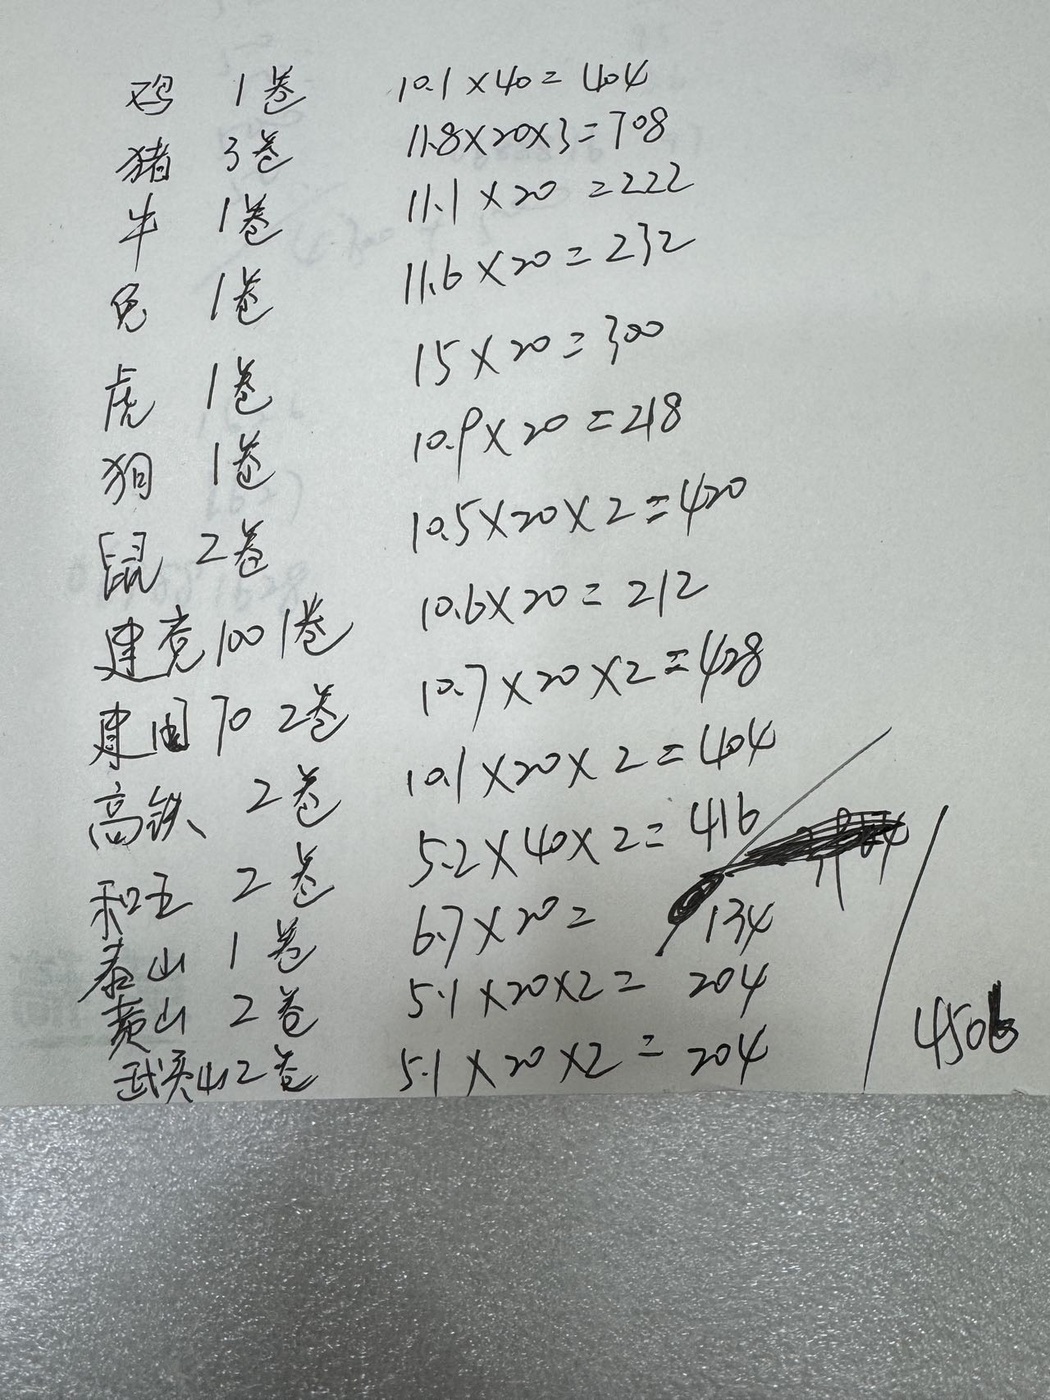 鸡 1卷 10.1×40=404
猪 3卷 11.8×20×3=708
牛 1卷 11.1×20=222
兔 1卷 11.6×20=232
虎 1卷 15×20=300
狗 1卷 10.9×20=218
鼠 2卷 10.5×20×2=420
建党100 1卷 10.6×20=212
建国70 2卷 10.7×20×2=428
高铁 2卷 10.1×20×2=404
和五 2卷 5.2×40×2=416
泰山 1卷 6.7×20= 134
黄山 2卷 5.1×20×2= 204
武夷山2卷 5.1×20×2= 204
4506